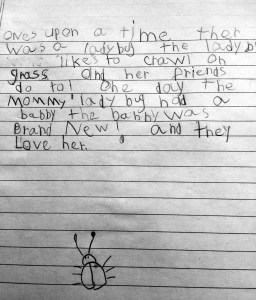 ones upon a time ther
was a ladybug the ladyb
likes to crawl on
grass and her friends
do to! One day the
Mommy ladybug had a
babby the babby was
Brand New! and they
Love her.